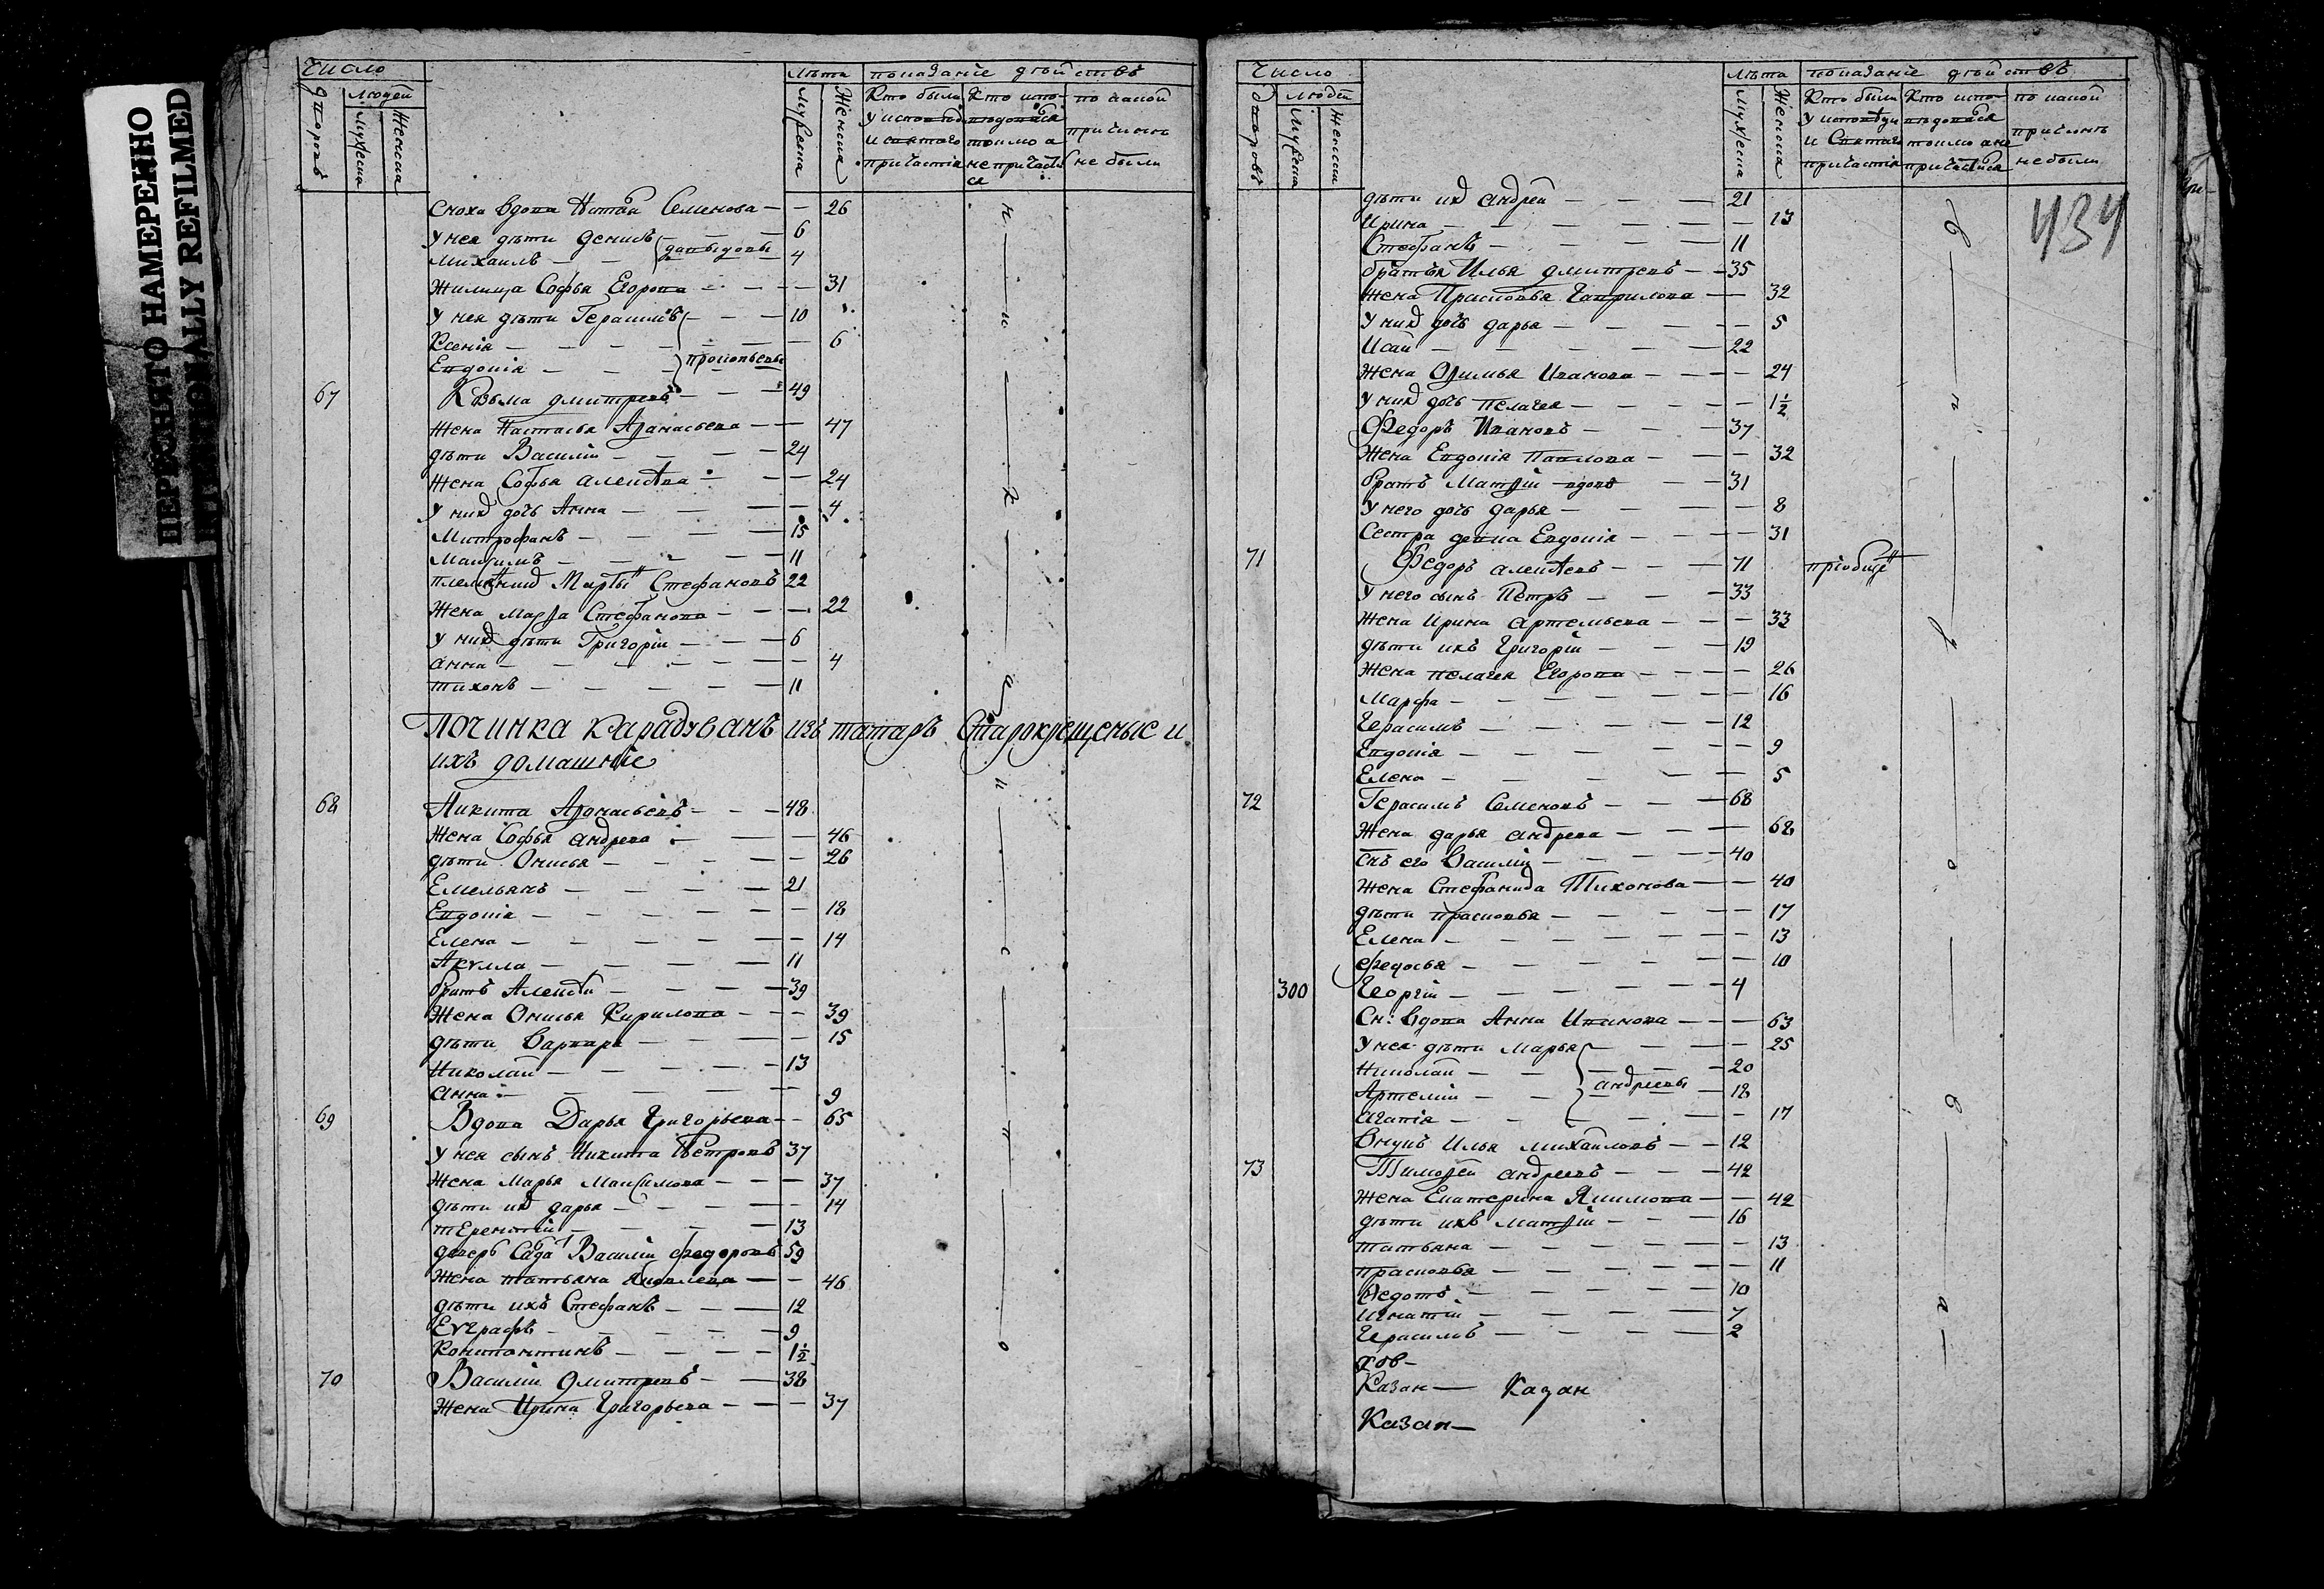 ПЕРЕСНЯТО НАМЕРЕННО
INTENTIONALLY REFILMED
Число
Лѣта показаніе дѣйствъ
дворовъ
людей
мужеска
женска
мужеска
женска
Кто были у исповѣди и святаго причастія
Кто исповѣдался токмо а не причастился
по какой причинѣ не были
Сноха вдова Семенова — — 26
У нея дѣти Денисъ — 6
Михаилъ — — Давыдовы 4
Жилица Софья Егорова — — 31
У нея дѣти Герасимъ — — 10
Ксенія — — — 6
Евдокія — — Прокопьевы
67 Козьма Дмитревъ — — 49
Жена Настасья Аѳанасьева — — 47
дѣти Василій — — 24
Жена Софья Алексѣева — — 24
У нихъ дочь Анна — — 4
Митрофанъ — — 15
Максимъ — — 11
племянникъ Стефановъ 22
Жена Марѳа Стефанова — — 22
У нихъ дѣти Григорій — — 6
Анна — — 4
Тихонъ — — 11
Починка Карадуванъ изъ татаръ Старокрещеные и
ихъ домашніе
68 Никита Аѳонасьевъ — — 48
Жена Софья Андрева — — 46
дѣти Онисья — — 26
Емельянъ — — 21
Евдокія — — 18
Елена — — 14
Акѵлла — — 11
братъ Алексѣй — — 39
Жена Онисья Кирилова — — 39
дѣти Варвара — — 15
Николай — — 13
Анна — — 9
69 Вдова Дарья Григорьева — — 65
У нея сынъ Никита Петровъ 37
Жена Марья Максимова — — 37
дѣти ихъ Дарья — — 14
Терентій — — 13
Василій Федоровъ 59
Жена Татьяна Яковлева — — 46
дѣти ихъ Стефанъ — — 12
Еѵграфъ — — 9
Константинъ — — 1½
70 Василій Дмитревъ — — 38
Жена Ирина Григорьева — — 37
Число
Лѣта показаніе дѣйствъ
дворовъ
людей
мужеска
женска
мужеска
женска
Кто были у исповѣди и Святаго причастія
Кто исповѣдался токмо а не причастился
по какой причинѣ не были
434
дѣти ихъ Андрей — — 21
Ирина — — 13
Стефанъ — — 11
братья Илья Дмитревъ — — 35
Жена Прасковья Гаврилова — — 32
У нихъ дочь Дарья — — 5
Исай — — 22
Жена Офимья Иванова — — 24
У нихъ дочь Пелагея — — 1½
Федоръ Ивановъ — — 37
Жена Евдокія Павлова — — 32
братъ Матѳій вдовъ — — 31
У него дочь Дарья — — 8
Сестра девка Евдокія — — 31
71 Федоръ Алексѣевъ — — 71
У него сынъ Петръ — — 33
Жена Ирина Артемьева — — 33
дѣти ихъ Григорій — — 19
Жена Пелагея Егорова — — 26
Марфа — — 16
Герасимъ — — 12
Евдокія — — 9
Елена — — 5
72 Герасимъ Семеновъ — — 68
Жена Дарья Андрева — — 68
снъ его Василій — — 40
Жена Стефанида Тихонова — — 40
дѣти Прасковья — — 17
Елена — — 13
Федосья — — 10
300 Георгій — — 4
Сн: вдова Анна Иванова — — 63
У нея дѣти Марья — — 25
Николай — — 20
Артемій — — Андреевы — 18
Агапія — — 17
Внукъ Илья Михайловъ — — 12
73 Тимоѳей Андреевъ — — 42
Жена Екатерина Якимова — — 42
дѣти ихъ Матѳій — — 16
Татьяна — — 13
Прасковья — — 11
Федотъ — — 10
Игнатій — — 7
Герасимъ — — 2
Казан — Казан
Казан —